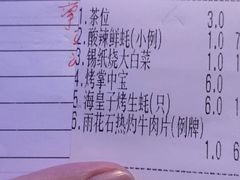 1.茶位 3.0
2.酸辣鲜蚝(小例) 1.0
3.锡纸烧大白菜 1.0
4.烤掌中宝 6.0
5.海皇子烤生蚝(只) 6.0
6.雨花石热灼牛肉片(例牌)
1.0 6